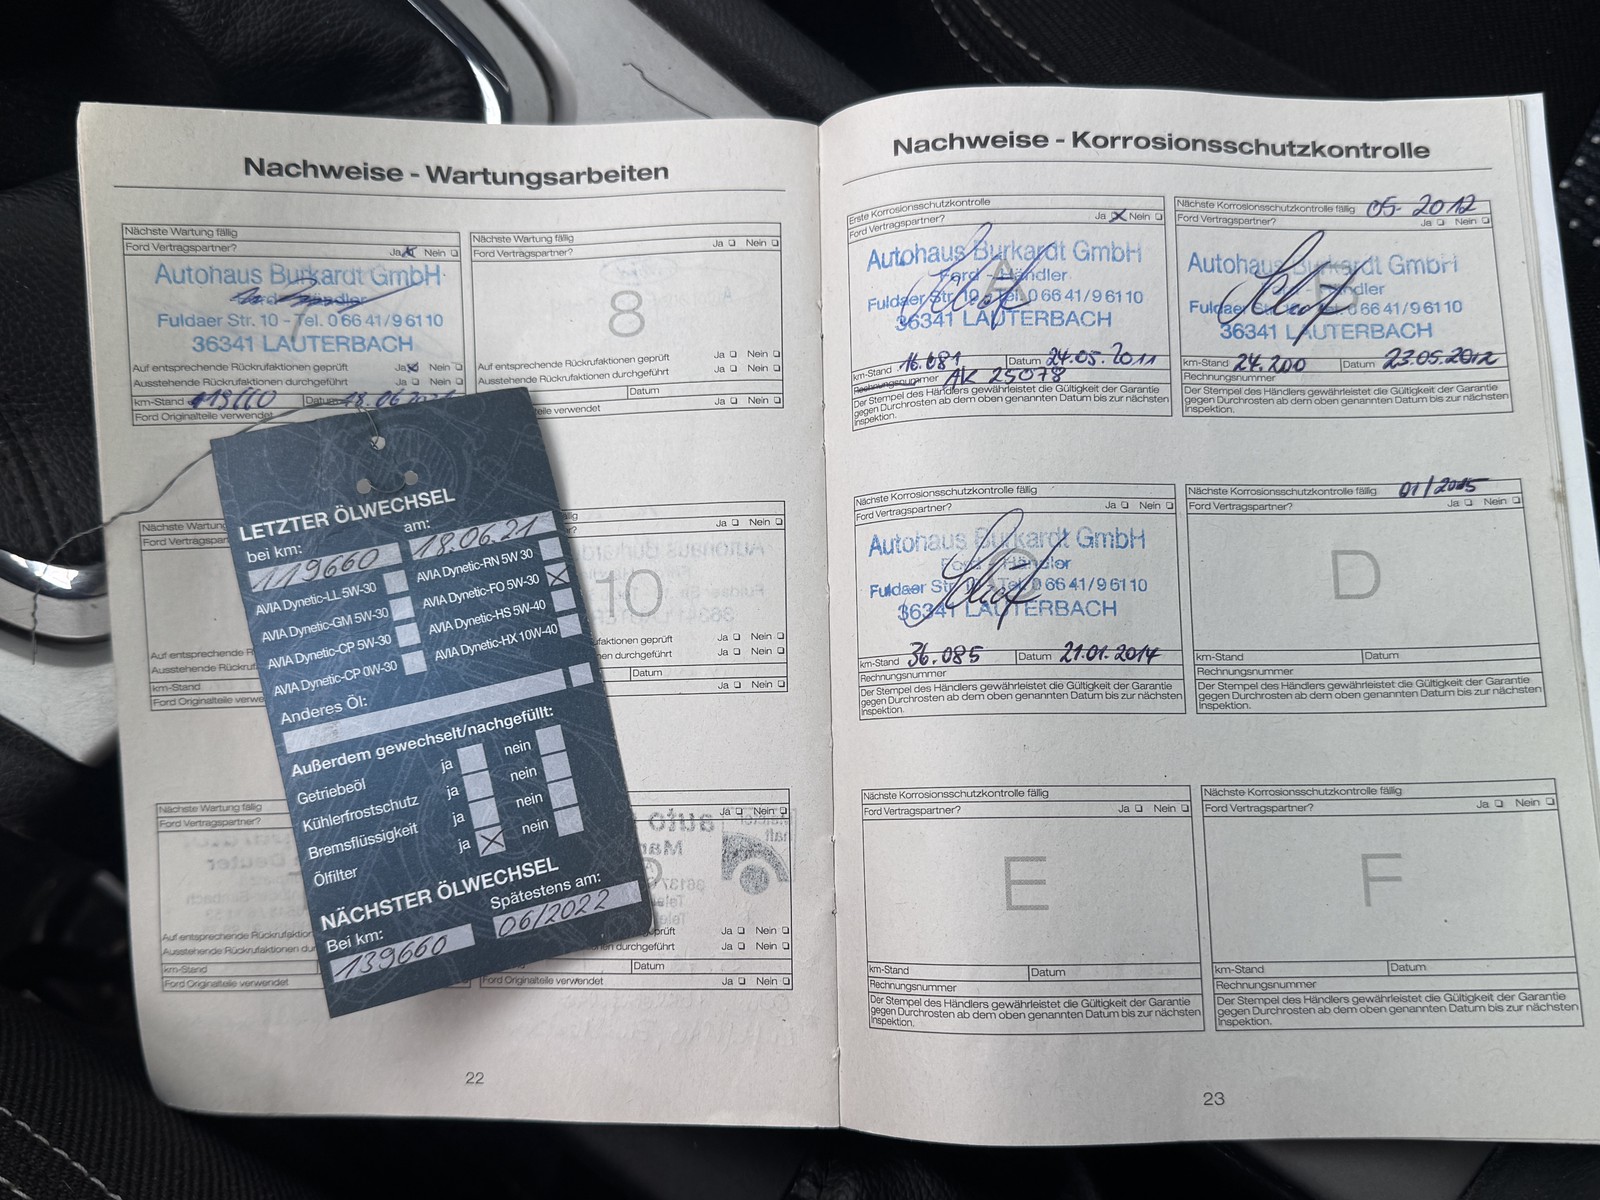 Nachweise - Wartungsarbeiten
Nächste Wartung fällig
Ford Vertragspartner? Ja Nein
Autohaus Burkardt GmbH
Ford - Händler
Fuldaer Str. 10 - Tel. 0 66 41/9 61 10
36341 LAUTERBACH
Auf entsprechende Rückrufaktionen geprüft Ja Nein
Ausstehende Rückrufaktionen durchgeführt Ja Nein
km-Stand 119660 Datum 18.06.2021
Ford Originalteile verwendet
Nächste Wartung fällig
Ford Vertragspartner? Ja Nein
8
Auf entsprechende Rückrufaktionen geprüft Ja Nein
Ausstehende Rückrufaktionen durchgeführt Ja Nein
Datum
teile verwendet Ja Nein
Nächste Wartun
Ford Vertragspar
Auf entsprechende R
Ausstehende Rückruf
km-Stand
Ford Originalteile verwe
llig
Ja Nein
10
ufaktionen geprüft Ja Nein
en durchgeführt Ja Nein
Datum
Ja Nein
LETZTER ÖLWECHSEL
bei km: am:
119660 18.06.21
AVIA Dynetic-LL 5W-30 AVIA Dynetic-RN 5W 30
AVIA Dynetic-GM 5W-30 AVIA Dynetic-FO 5W-30
AVIA Dynetic-CP 5W-30 AVIA Dynetic-HS 5W-40
AVIA Dynetic-CP 0W-30 AVIA Dynetic-HX 10W-40
Anderes Öl:
Außerdem gewechselt/nachgefüllt:
Getriebeöl ja nein
Kühlerfrostschutz ja nein
Bremsflüssigkeit ja nein
Ölfilter ja nein
NÄCHSTER ÖLWECHSEL
Bei km: Spätestens am:
139660 06/2022
Nächste Wartung fällig
Ford Vertragspartner?
Auf entsprechende Rückrufaktion
Ausstehende Rückrufaktionen du
km-Stand
Ford Originalteile verwendet
Ja Nein
prüft Ja Nein
nen durchgeführt Ja Nein
Datum
Ford Originalteile verwendet Ja Nein
22
Nachweise - Korrosionsschutzkontrolle
Erste Korrosionsschutzkontrolle
Ford Vertragspartner? Ja Nein
A
Autohaus Burkardt GmbH
Ford - Händler
Fuldaer Str. 10 - Tel. 0 66 41/9 61 10
36341 LAUTERBACH
km-Stand 16.681 Datum 24.05.2011
Rechnungsnummer AK 25078
Der Stempel des Händlers gewährleistet die Gültigkeit der Garantie
gegen Durchrosten ab dem oben genannten Datum bis zur nächsten
Inspektion.
Nächste Korrosionsschutzkontrolle fällig 05-2012
Ford Vertragspartner? Ja Nein
Autohaus Burkardt GmbH
Ford - Händler
Fuldaer Str. 10 - Tel. 0 66 41/9 61 10
36341 LAUTERBACH
km-Stand 24.200 Datum 23.05.2012
Rechnungsnummer
Der Stempel des Händlers gewährleistet die Gültigkeit der Garantie
gegen Durchrosten ab dem oben genannten Datum bis zur nächsten
Inspektion.
Nächste Korrosionsschutzkontrolle fällig
Ford Vertragspartner? Ja Nein
Autohaus Burkardt GmbH
Ford - Händler
Fuldaer Str. 10 - Tel. 0 66 41/9 61 10
36341 LAUTERBACH
km-Stand 36.085 Datum 21.01.2014
Rechnungsnummer
Der Stempel des Händlers gewährleistet die Gültigkeit der Garantie
gegen Durchrosten ab dem oben genannten Datum bis zur nächsten
Inspektion.
Nächste Korrosionsschutzkontrolle fällig 01/2015
Ford Vertragspartner? Ja Nein
D
km-Stand Datum
Rechnungsnummer
Der Stempel des Händlers gewährleistet die Gültigkeit der Garantie
gegen Durchrosten ab dem oben genannten Datum bis zur nächsten
Inspektion.
Nächste Korrosionsschutzkontrolle fällig
Ford Vertragspartner? Ja Nein
E
km-Stand Datum
Rechnungsnummer
Der Stempel des Händlers gewährleistet die Gültigkeit der Garantie
gegen Durchrosten ab dem oben genannten Datum bis zur nächsten
Inspektion.
Nächste Korrosionsschutzkontrolle fällig
Ford Vertragspartner? Ja Nein
F
km-Stand Datum
Rechnungsnummer
Der Stempel des Händlers gewährleistet die Gültigkeit der Garantie
gegen Durchrosten ab dem oben genannten Datum bis zur nächsten
Inspektion.
23